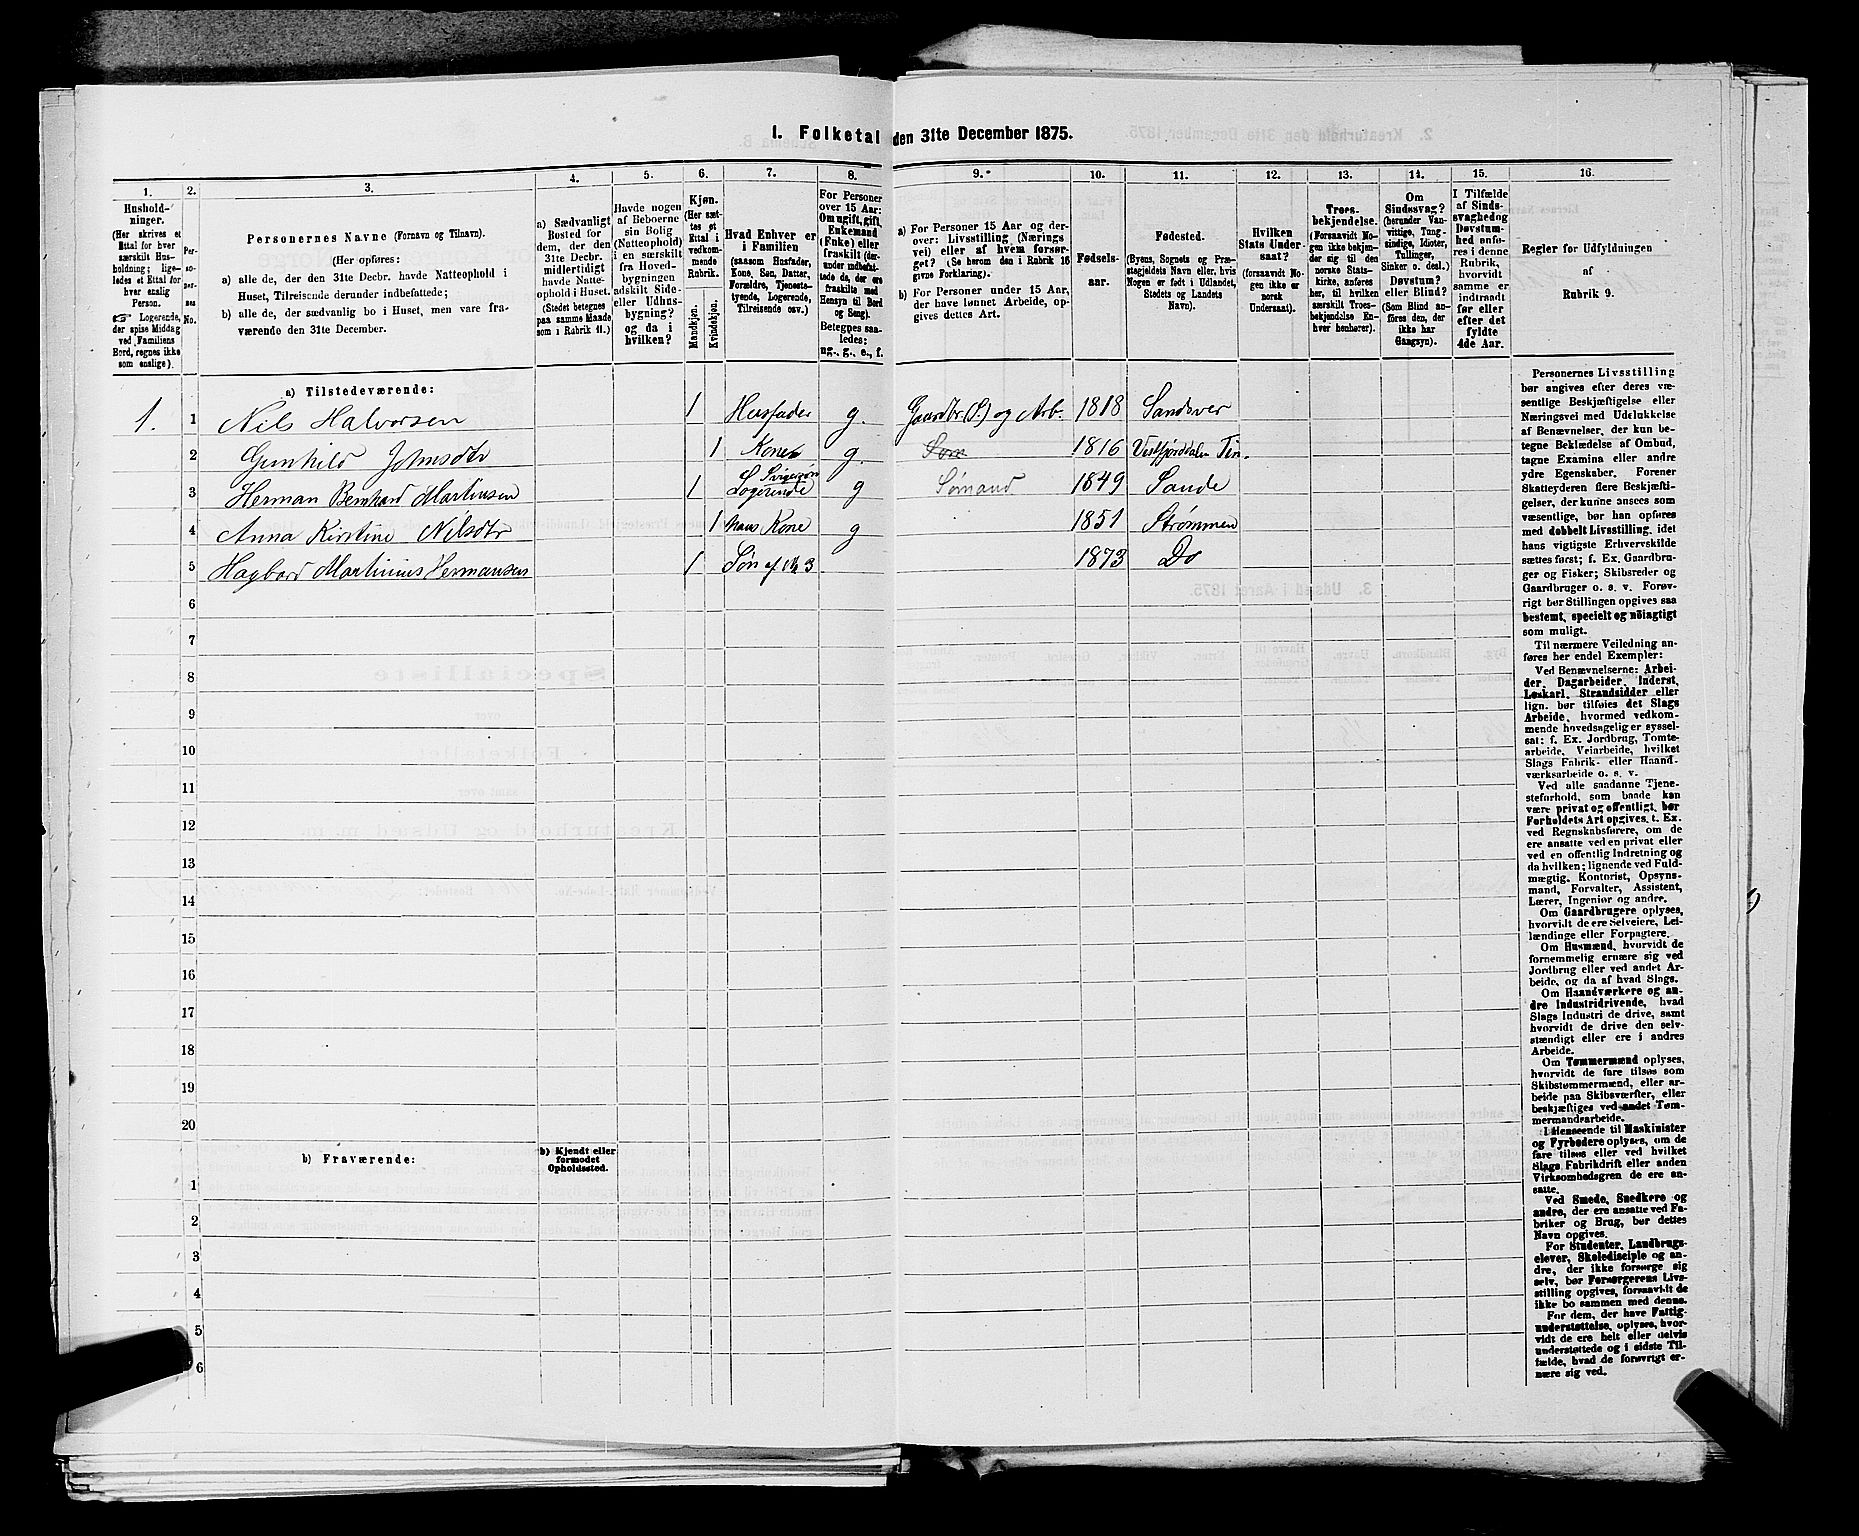 1. Folketal den 31te December 1875.
1. 2. 3. 4. 5. 6. 7. 8. 9. 10. 11. 12. 13. 14. 15. 16.
Hushold-
ninger.
(Her skrives et
Ettal for hver
særskilt Hus-
holdning; lige-
ledes et Ettal for
hver enslig
Person.
☞ Logerende,
der spise Middag
ved Familiens
Bord, regnes ikke
som enslige).
Per-
so-
ner-
nes
No.
Personernes Navne (Fornavn og Tilnavn).
(Her opføres:
a) alle de, der den 31te Decbr. havde Natteophold i
Huset, Tilreisende derunder indbefattede;
b) alle de, der sædvanlig bo i Huset, men vare fra-
værende den 31te December.
a) Sædvanligt
Bosted for
dem, der den
31te Decbr.
midlertidigt
havde Natte-
ophold i Huset.
(Stedet betegnes
paa samme Maade
som i Rubrik 11.)
Havde nogen
af Beboerne
sin Bolig
(Natteophold)
i en særskilt
fra Hoved-
bygningen
adskilt Side-
eller Udhus-
bygning?
og da i
hvilken?
Kjøn.
(Her sæt-
tes et
Ettal i
vedkom-
mende
Rubrik.
Mandkjøn.
Kvindekjøn.
Hvad Enhver er
i Familien
(saasom Husfader,
Kone, Søn, Datter,
Forældre, Tjeneste-
tyende, Logerende,
Tilreisende osv.)
For Personer
over 15 Aar:
Om ugift, gift,
Enkemand
(Enke) eller
fraskilt (der-
under indbefat-
tede de, der ere
fraskilte med
Hensyn til Bord
og Seng).
Betegnes saa-
ledes;
ug., g., e., f.
a) For Personer 15 Aar og der-
over: Livsstilling (Nærings
vei) eller af hvem forsør-
get? (Se herom den i Rubrik 16
givne Forklaring).
b) For Personer under 15 Aar,
der have lønnet Arbeide, op-
gives dettes Art.
Fødsels-
aar.
Fødested.
(Byens, Sognets og Præ-
stegjeldets Navn eller, hvis
Nogen er født i Udlandet,
Stedets og Landets
Navn).
Hvilken
Stats Under-
saat?
(forsaavidt No-
gen ikke er
norsk
Undersaat).
Troes-
bekjendelse.
(Forsaavidt No-
gen ikke bekjen-
der sig til den
norske Stats-
kirke, anføres
her, til hvilken
særskilt Troes-
bekjendelse En-
hver henhører).
Om
Sindssvag?
(herunder Van-
vittige, Tung-
sindige, Idioter,
Tullinger,
Sinker o. desl.)
Døvstum?
eller Blind?
(Som Blind an-
føres den, der
ikke har
Gangsyn).
I Tilfælde
af Sinds-
svaghed og
Døvstum-
hed anfø-
res i denne
Rubrik,
hvorvidt
samme er
indtraadt
før eller
efter det
fyldte
4de Aar.
Regler for Udfyldningen
af
Rubrik 9.
a) Tilstedeværende:
1. 1 Nils Halvorsen 1 Husfader g. Gaardbr. (S.) og Arb. 1818 Sandsver
2 Gunhild Johnsdtr 1 Kone g. Som 1816 Vestfjorddalen Tin.
Svigersøn
3 Herman Bernhard Martinsen 1 Logerende g Sømand 1849 Sande
4 Anna Kirstine Nilsdtr 1 hans Kone g 1851 Strømmen
5 Hagbard Martinius Hermansen 1 Søn af No 3 1873 Do
6
7
8
9
10
11
12
13
14
15
16
17
18
19
20
b) Fraværende:
b) Kjendt eller
formodet
Opholdssted.
1
2
3
4
5
6
Personernes Livsstilling
bør angives efter deres væ-
sentlige Beskjæftigelse eller
Næringsvei med Udelukkelse
af Benævnelser, der kun be-
tegne Beklædelse af Ombud,
tagne Examina eller andre
ydre Egenskaber. Forener
Skatteyderen flere Beskjæfti-
gelser, der kunne ansees som
væsentlige, bør han opføres
med dobbelt Livsstilling, idet
hans vigtigste Erhvervskilde
sættes først; f. Ex. Gaardbru-
ger og Fisker; Skibsreder og
Gaardbruger o. s. v. Forøv-
rigt bør Stillingen opgives saa
bestemt, specielt og nöiagtigt
som muligt.
Til nærmere Veiledning an-
føres her endel Exempler:
Ved Benævnelserne: Arbei-
der, Dagarbeider, Inderst,
Løskarl, Strandsidder eller
lign. bør tilføies det Slags
Arbeide, hvormed vedkom-
mende hovedsagelig er syssel-
sat: f. Ex. Jordbrug, Tomte-
arbeide, Veiarbeide, hvilket
Slags Fabrik- eller Haand-
værksarbeide o. s. v.
Ved alle saadanne Tjene-
steforhold, som baade kan
være privat og offentligt, bør
Forholdets Art opgives, t. Ex.
ved Regnskabsførere, om de
ere ansatte ved en privat eller
ved en offentlig Indretning og
da hvilken; lignende ved Fuld-
mægtig, Kontorist, Opsyns-
mand, Forvalter, Assistent,
Lærer, Ingeniør og andre.
Om Gaardbrugere oplyses,
hvorvidt de ere Selveiere, Lei-
lændinge eller Forpagtere.
Om Husmænd, hvorvidt de
fornemmelig ernære sig ved
Jordbrug eller ved andet Ar-
beide, og da af hvad Slags.
Om Haandværkere og an-
dre Industridrivende, hvad
Slags Industri de drive, samt
hvorvidt de drive den selv-
stændigt eller ere i andres
Arbeide.
Om Tømmermænd oplyses,
hvorvidt de fare tilsøs som
Skibstømmermænd, eller ar-
beide paa Skibsværfter, eller
beskjæftiges ved andet Tøm-
mermandsarbeide.
I Henseende til Maskinister
og Fyrbødere oplyses, om de
fare tilsøs eller ved hvilket
Slags Fabrikdrift eller anden
Virksomhedsgren de ere an-
satte.
Ved Smede, Snedkere og
andre, der ere ansatte ved Fa-
briker og Brug, bør dettes
Navn opgives.
For Studenter, Landbrugs-
elever, Skoledisciple og an-
dre, der ikke forsørge sig
selv, bør Forsørgerens Livs-
stilling opgives, forsaavidt de
ikke bo sammen med denne.
For dem, der have Fattig-
understøttelse, oplyses, hvor-
vidt de ere helt eller delvis
understøttede og i sidste Til-
fælde, hvad de forøvrigt er-
nære sig ved.